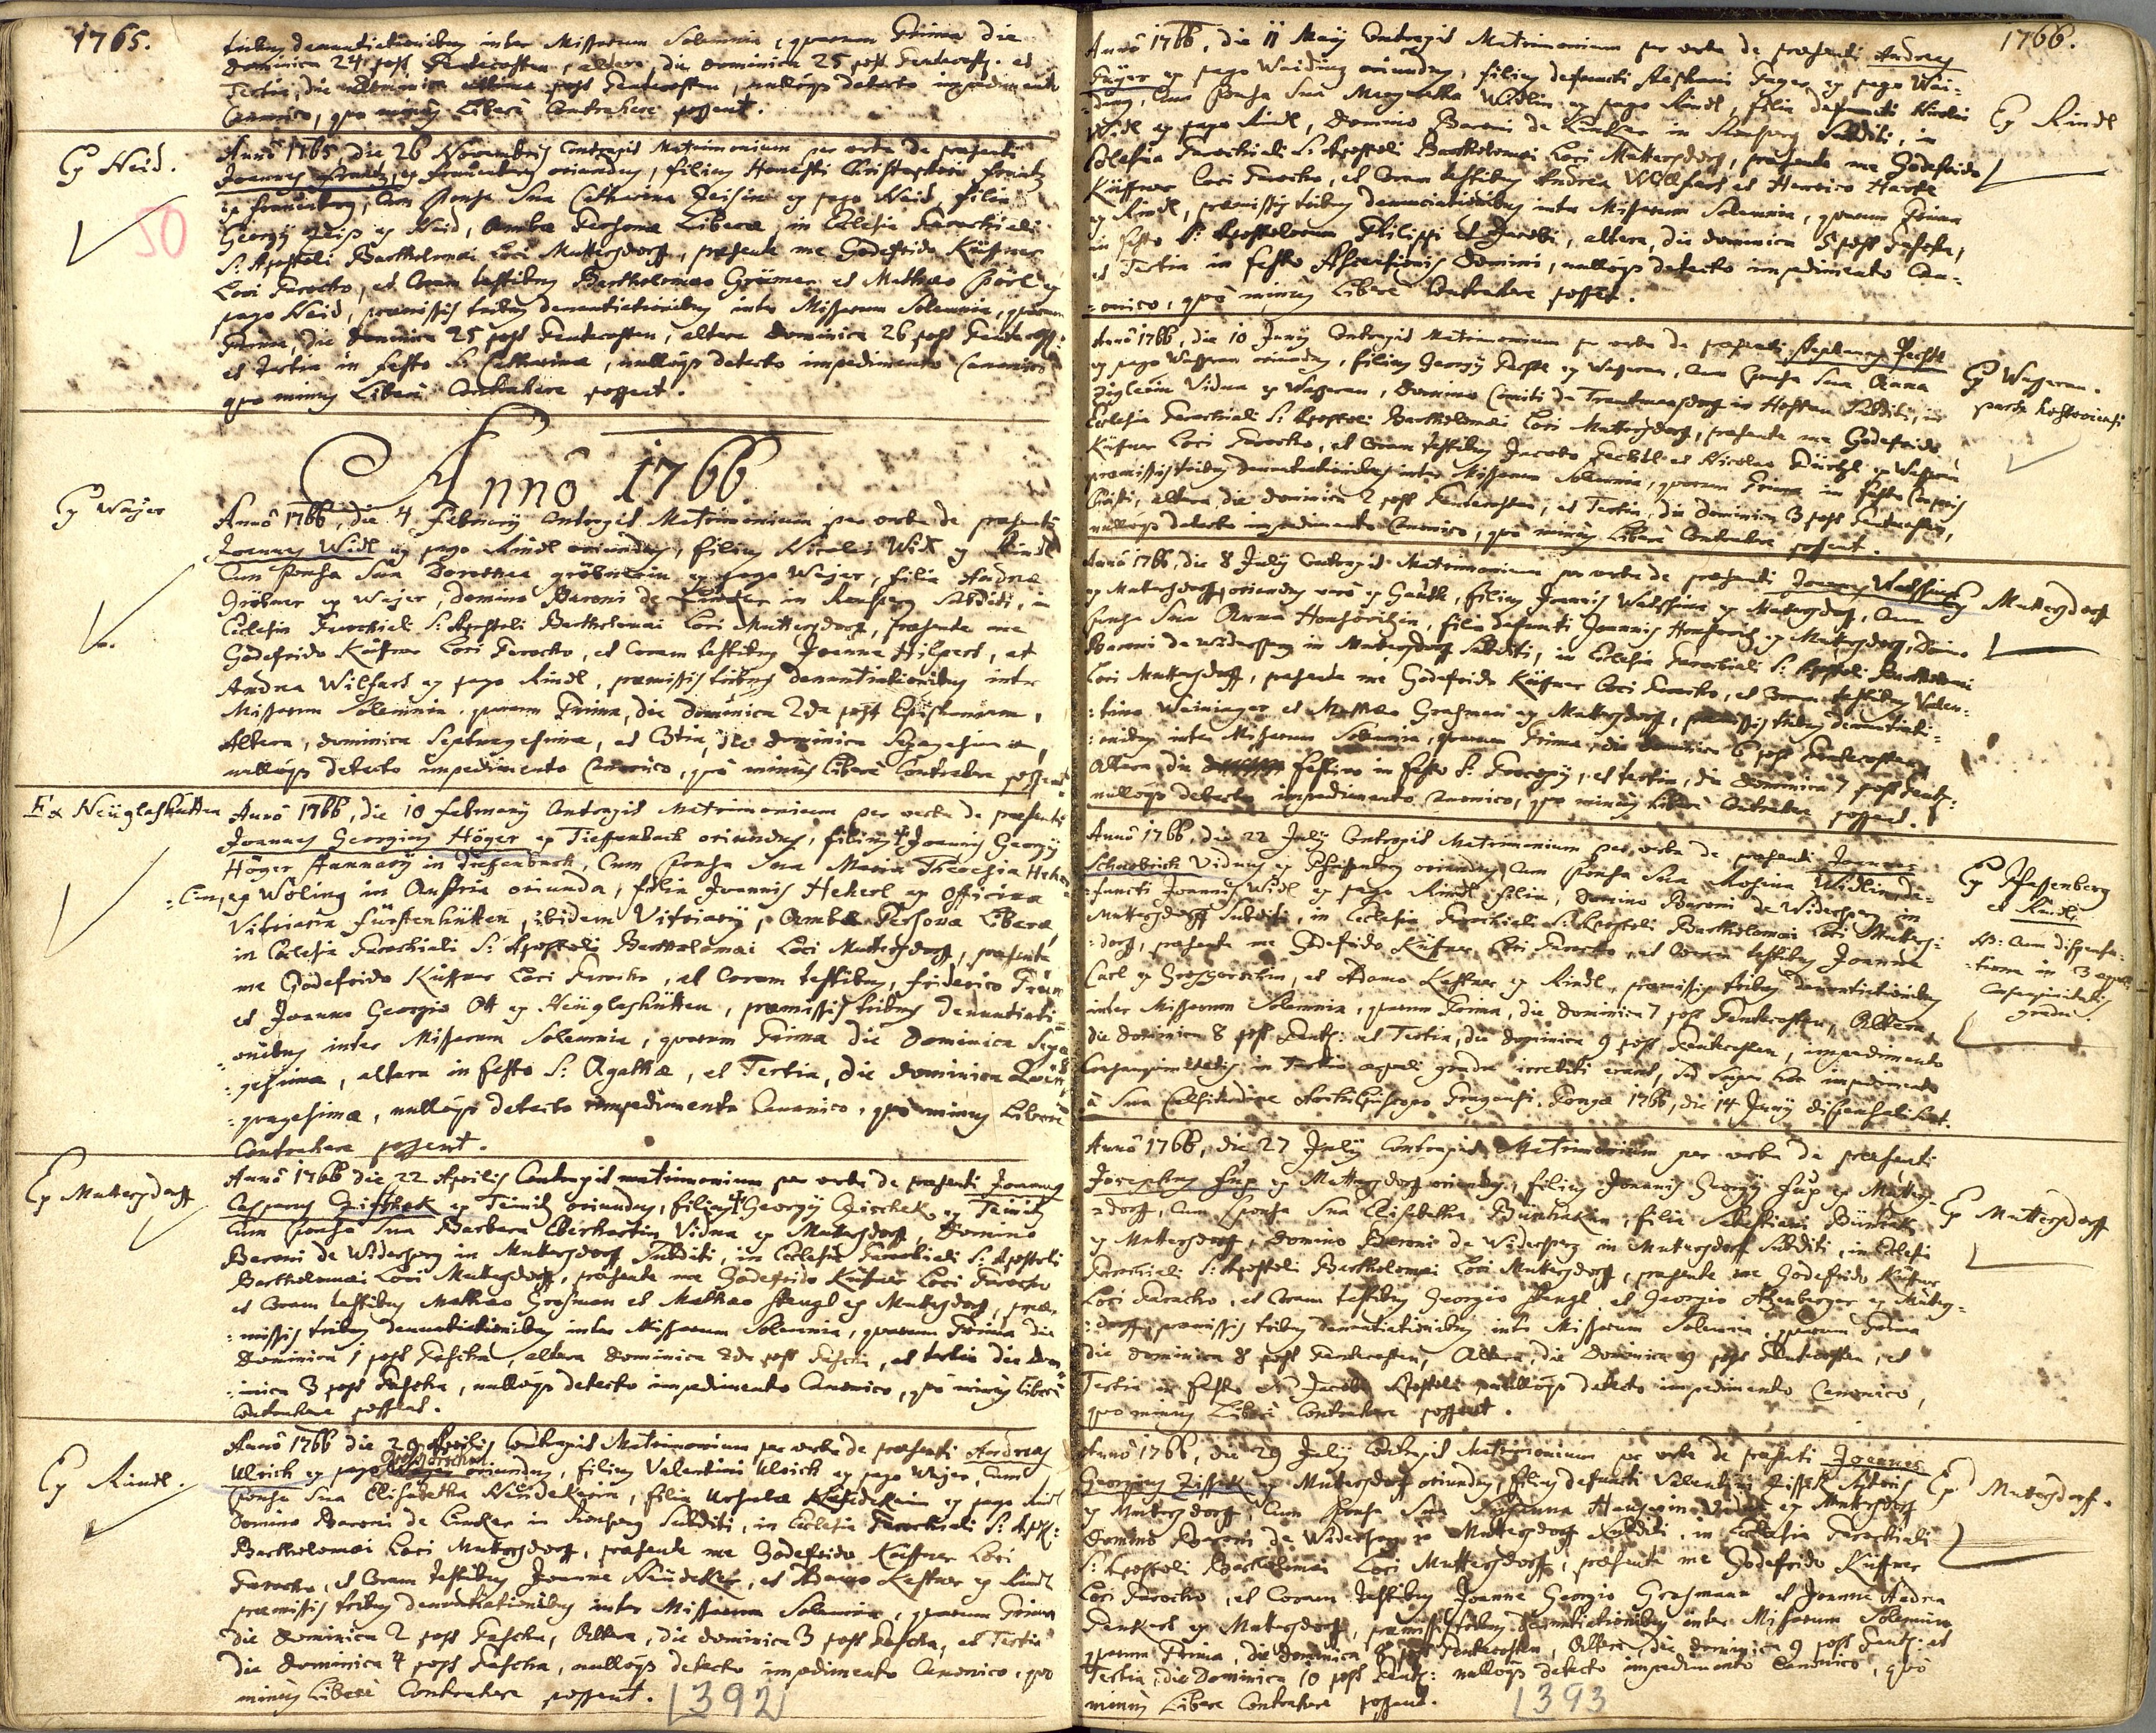 1765.
tribus denuntiationibus inter Missarum Solemnia, quarum Prima die
Dominica 24 post Pentecosten, altera, die Dominica 25 post Pentecost. et
Tertia, die Dominica ultima post Pentecosten, nulloqs detecto impedimento
Canonico, quo minus Liberè Contrahere possent.
Ex Heid.
50
Annô 1765, die 26 Novembris Contraxit Matrimonium per verba de praesenti
Joannes ex Frauenberg oriundus, filius Honesti Christophori
ex Frauenberg, Cum Sponsa Sua Catharina ex pago Heid, filia
Georgij ex Heid, Ambae Personae Liberae, in Ecclesia Parochiali
S: Apostoli Bartholomaei Loci Muttersdorff, praesente me Godefrido Küffner
Loci Parocho, et Coram testibus Bartholomaeo et Mathaeo ex
pago Heid, praemissis tribus denuntiationibus inter Missarum Solemnia, quarum
Prima, die Dominica 25 post Pentecosten, altera Dominica 26 post Pentecost:
et Tertia in Festo S. Catharinae, nulloqs detecto impedimento Canonico
quo minus Liberè Contrahere possent.
Annô 1766
Ex Wajer
Annô 1766, die 4 Februarij Contraxit Matrimonium per verba de praesenti
Joannes Widl ex pago Rindl oriundus, filius Nicolai Widl ex Rindl
Cum Sponsa Sua Dorothea Gröbnerin ex pago Wajer, filia Andreae
Gröbner ex Wajer, Domino Baroni de Lincker in Ronsperg Subditi, in
Ecclesia Parochiali S: Apostoli Bartholomaei Loci Muttersdorff, praesente me
Godefrido Küffner Loci Parocho, et Coram testibus Joanne Hilpert, et
Andrea Wilfart ex pago Rindl, praemissis tribus denuntiationibus inter
Missarum Solemnia, quarum Prima, die Dominica 2da post Epiphaniam,
Altera, Dominica Septuagesima, et 3tia, die Dominica Sexagesima,
nulloqs detecto impedimento Canonico, quò minus Liberè Contrahere possent
Ex Neüglashütten
Annô 1766, die 10 Februarij Contraxit Matrimonium per verba de praesenti
Joannes Georgius Höger ex Tieffenbach oriundus, filius Joannis Georgij
Höger in Tieffenbach, Cum Sponsa Sua Maria Theresia Heker=
=lin, ex Wöling in Austria oriunda, filia Joannis Hekerl ex Officina
Vitriaria Fürstenhütten, ibidem Vitriarij, Ambae Personae Liberae,
in Ecclesia Parochiali S: Apostoli Bartholomaei Loci Muttersdorff, praesente
me Godefrido Küffner Loci Parocho, et Coram testibus, Friderico
et Joanne Georgio Ott ex Neüglashütten, praemissis tribus denuntiati=
=onibus inter Missarum Solemnia, quarum Prima die Dominica Sexa=
=gesima, altera in Festo S: Agathae, et Tertia, die Dominica Quin=
=quagesima, nulloqs detecto impedimento Canonico, quò minus Liberè
Contrahere possent.
Ex Muttersdorff
Annô 1766 die 22 Aprilis Contraxit matrimonium per verba de praesenti Joannes
Casparus ex Teinitz oriundus, filius Georgij ex Teinitz
Cum Sponsa Sua Barbara Eberhartin Vidua ex Muttersdorff, Domino
Baroni de Widersperg in Muttersdorff Subditi, in Ecclesia Parochiali S: Apostoli
Bartholomaei Loci Muttersdorff, praesente me Godefrido Küffner Loci Parocho
et Coram testibus Mathaeo Grosman et Mathaeo Stengl ex Muttersdorff, prae=
=missis tribus denuntiationibus inter Missarum Solemnia, quarum Prima die
Dominica 1 post Pascha, altera Dominica 2da post Pascha, et tertia die Dom=
=inica 3 post Pascha, nulloqs detecto impedimento Canonico, quò minus Liberè
Contrahere possent.
Ex Rindl.
Annô 1766 die 29 Aprilis Contraxit Matrimonium per verba de praesenti Andreas
Ulrich ex pago oriundus, filius Valentini Ulrich ex pago Wajer, Cum
Sponsa Sua Elisabetha Neüdekerin, filia Ursulae Neüdekerin ex pago Rindl
Domino Baroni de Lincker in Ronsperg Subditi, in Ecclesia Parochiali S: Apost:
Bartholomaei Loci Muttersdorff, praesente me Godefrido Küffner Loci
Parocho, et Coram testibus Joanne Neüdeker, et Adamo Kastner ex Rindl
praemissis tribus denuntiationibus inter Missarum Solemnia, quarum Prima
die Dominica 2 post Pascha, Altera, die Dominica 3 post Pascha, et Tertia
die Dominica 4 post Pascha, nulloqs detecto impedimento Canonico, quo
minus Liberè Contrahere possent.
392
1766.
Annô 1766, die 11 Maij Contraxit Matrimonium per verba de praesenti Andreas
ex pago Waiding oriundus, filius defuncti Stephani ex pago Wai=
=ding, Cum Sponsa Sua Margaretha Widlin ex pago Rindl, filia defuncti Nicolai
Widl ex pago Rindl, Domino Baroni de Lincker in Ronsperg Subditi, in
Ecclesia Parochiali S: Apostoli Bartholomaei Loci Muttersdorff, praesente me Godefrido
Küffner Loci Parocho, et Coram testibus Andrea Wilfart et Henrico
ex Rindl, praemissis tribus denuntiationibus inter Missarum Solemnia, quarum Prima
in Festo S: Apostolorum Philippi et Jacobi, altera, die Dominica 5 post Pascha,
et Tertia in Festo Ascensionis Domini, nulloqs detecto impedimento Can=
=onico, quò minus Liberè Contrahere possent.
Ex Rindl
Annô 1766, die 10 Junij Contraxit Matrimonium per verba de praesenti Stephanus
ex pago oriundus, filius Georgij ex Cum Sponsa Sua Anna
Vidua ex Domino Comiti de Trautmansdorff in Hostau Subditi, in
Ecclesia Parochiali S: Apostoli Bartholomaei Loci Muttersdorff, praesente me Godefrido
Küffner Loci Parocho, et Coram testibus Jacobo et Nicolao
praemissis tribus denuntiationibus inter Missarum Solemnia, quarum Prima in Festo Corporis
Christi, altera, die Dominica 2 post Pentecosten, et Tertia, die Dominica 3 post Pentecosten,
nulloqs detecto impedimento Canonico, quò minus Liberè Contrahere possent.
Annô 1766, die 8 Julij Contraxit Matrimonium per verba de praesenti Joannes
ex Muttersdorff, oriundus verò ex filius Joannis ex Muttersdorff, Cum
Sponsa Sua Anna filia defuncti Joannis ex Muttersdorff, Dmino
Baroni de Widersperg in Muttersdorff Subditi, in Ecclesia Parochiali S: Apostoli Bartholomaei
Loci Muttersdorff, praesente me Godefrido Küffner Loci Parocho, et Coram testibus Valen=
=tino Weininger et Mathaeo Grosman ex Muttersdorff, praemissis tribus denuntiati=
=onibus inter Missarum Solemnia, quarum Prima, die Dominica 6 post Pentecosten,
Altera, die Festivo in Festo S: Procopij, et tertia, die Dominica 7 post Pent:
nulloqs detecto impedimento Canonico, quo minus Liberè Contrahere possent.
Ex Muttersdorff
Annô 1766, die 22 Julij Contraxit Matrimonium per verba de praesenti Joannes
Viduus ex Pfaffenberg oriundus, Cum Sponsa Sua Rosina Widlin de=
=functi Joannis Widl ex pago Rindl filia, Domino Baroni de Widersperg in
Muttersdorff Subditi, in Ecclesia Parochiali S: Apostoli Bartholomaei Loci Mutters=
=dorff, praesente me Godefrido Küffner Loci Parocho, et Coram testibus Joanne
Carl ex et Adamo Kastner ex Rindl, praemissis tribus denuntiationibus
inter Missarum Solemnia, quarum Prima, die Dominica 7 post Pentecosten, Altera,
die Dominica 8 post Pent: et Tertia, die Dominica 9 post Pentecosten, impedimento
Consanguinitatis in Tertio aequali gradu irretiti erant, sed super hoc impedimento
à Sua Celsitudine Archiepiscopo Pragensi, Pragae 1766, die 14 Junij dispensati sunt.
Ex Pfaffenberg
et Rindl
NB: Cum dispensa=
=tione in 3 aequali
Consanguinitatis
gradu.
Annô 1766, die 27 Julij Contraxit Matrimonium per verba de praesenti
Josephus ex Muttersdorff oriundus, filius Joannis Georgij ex Mutters=
=dorff, Cum Sponsa Sua Elisabetha filia Sebastiani
ex Muttersdorff, Domino Baroni de Widersperg in Muttersdorff Subditi, in Ecclesia
Parochiali S: Apostoli Bartholomaei Loci Muttersdorff, praesente me Godefrido Küffner
Loci Parocho, et Coram testibus Georgio Stengl et Georgio ex Mutters=
=dorff, praemissis tribus denuntiationibus inter Missarum Solemnia, quarum Prima
die Dominica 8 post Pentecosten, Altera, die Dominica 9 post Pentecosten, et
Tertia in Festo S. Jacobi Apostoli nulloqs detecto impedimento Canonico,
quo minus Liberè Contrahere possent.
Ex Muttersdorff
Annô 1766, die 29 Julij Contraxit Matrimonium per verba de praesenti Joannes
Georgius ex Muttersdorff oriundus, filius defuncti Valentini
ex Muttersdorff, Cum Sponsa Sua Vidua ex Muttersdorff
Domino Baroni de Widersperg in Muttersdorff Subditi, in Ecclesia Parochiali
S: Apostoli Bartholomaei Loci Muttersdorff, praesente me Godefrido Küffner
Loci Parocho, et Coram testibus Joanne Georgio Grosmann et Joanne Andrea
ex Muttersdorff, praemissis tribus denuntiationibus inter Missarum Solemnia
quarum Prima, die Dominica 8 post Pentecosten, Altera, die Dominica 9 post Pent: et
Tertia, die Dominica 10 post Pent: nulloqs detecto impedimento Canonico, quò
minus Libere Contrahere possent.
Ex Muttersdorff.
393